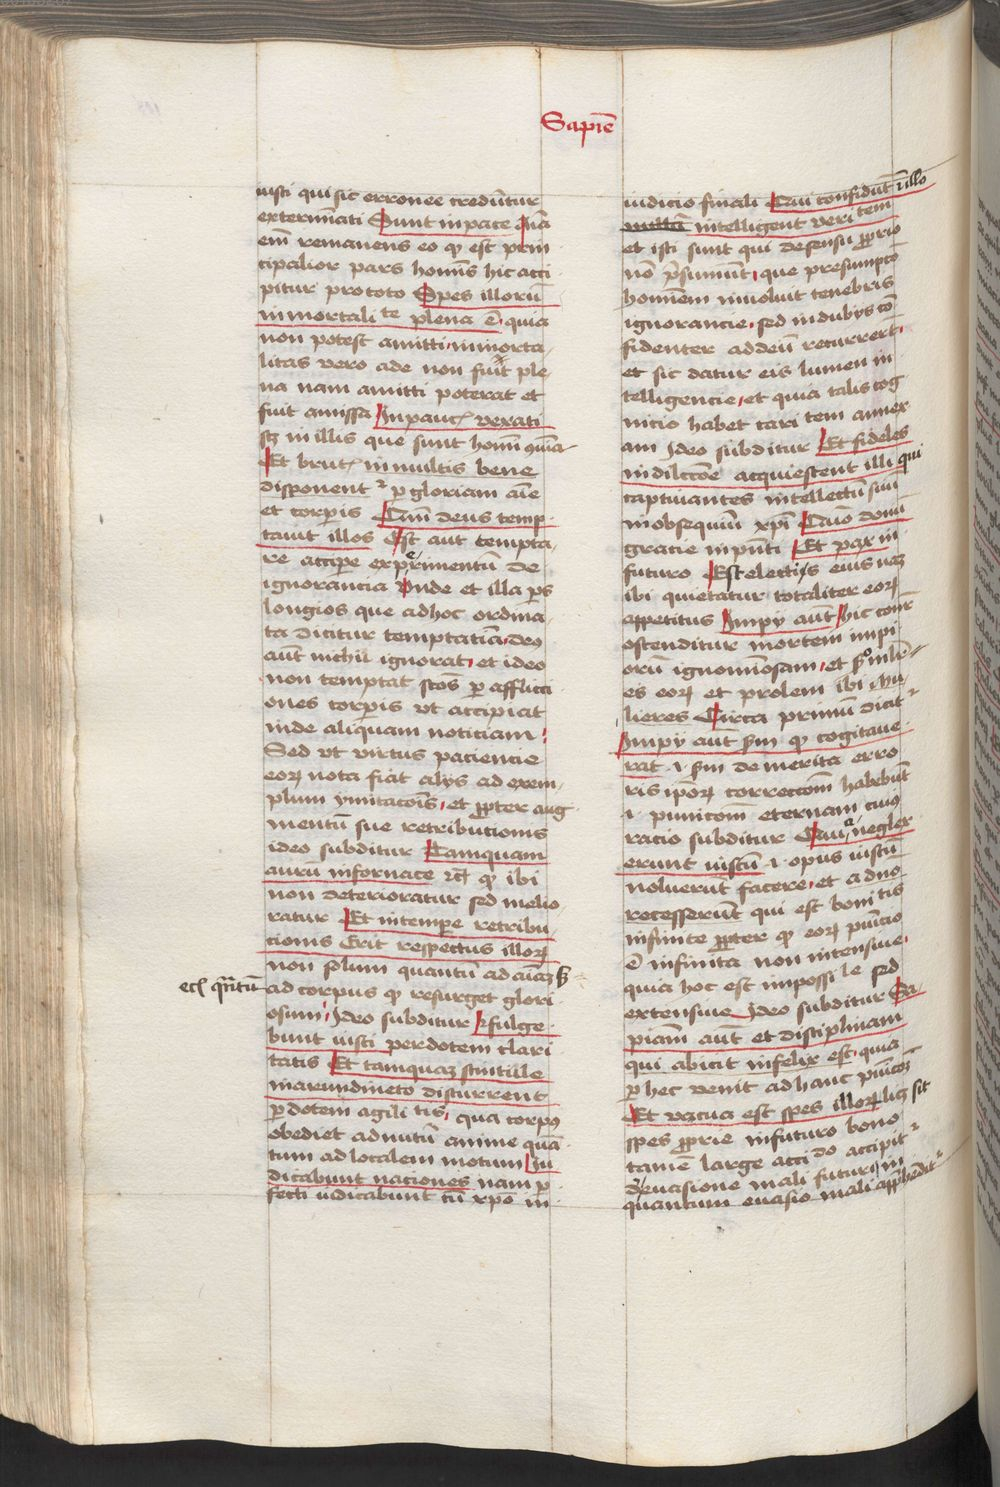 Sapiē
iusti qui sic erronee credūtur
exterminati Sunt in pace Aīa
em̄ remanens eo qꝫ est prin
cipalior pars hominis hic acci
pitur pro toto Spes illorū
inmortali te plena ē quia
non potest amitti inmorta
litas vero ade non fuit ple
na nam amitti poterat et
fuit amissa In paucꝭ vexati
scꝫ in illis que sunt homī
Et brutꝭ in multis bene
disponent ꝑ gloriam aīe
et corporis Qm̄ deus temp
tauit illos Est aut tempta
re accipe experimentum de
ignorancia Unde et illa
longios que ad hoc ordina
ta dicitur temptatiā deo
aūt nichil ignorat et ideo
non temptat scōs ꝑ afflicti
ones corporis vt accipiat
inde aliquam noticiam
Sed vt virtus paciencie
eorꝝ nota fiat alijs ad exem
plum ymitacōis et ꝓpter aug
mentū sue retribucionis
ideo subditur Tamquam
aurū in fornace qꝫ ibi
non deterioratur sed melio
ratur Et in tempe retribu
cionis Erit respectus illorꝝ
non solum quantū ad aīaꝫ sꝫ
ecl̄ quātū
ad corpus qꝫ resurget glori
osum Ideo subditur Refulge
bunt iusti per dotem clari
tatis Et tamquaꝫ scintille
in arundineto discurrent
ꝑ dotem agili tis qua corpꝰ
obediet ad nutū anime quā
tum ad localem motum Iu
dicabunt naciones nam ꝑ
fecti iudicabunt cū xpō in
iudicio finali Qui confidūt ī illo
intelligent veri tem
et isti sunt qui de sensu ꝓprio
nō p̄sumūt que presumpcō
hominem inuoluit tenebris
ignorancie sed in dubijs cō
fidenter ad deū recurrert
et sic datur eis lumen in
telligencie et quia talis cog
nicio habet cari tem annex
am Ideo subditur Et fideles
in dilc̄cōe acquiescent illi qui
captiuantes intellectū suū
in obsequiū xpī Qm̄ donū
gracie in pn̄ti Et pax in
futuro Est electis eius naꝫ
ibi quietatur totaliter eorꝝ
appetitus Impij aūt hic
ostenditur mortem impi
orū ignominosam et
es eorꝝ et prolem ibi Mu
lieres Circa primū dicit
Impij aūt sm̄ qꝫ cogitaue
rat .i. sm̄ de merita erro
ris ipōꝝ correccōm habebūt
.i. punicōm eternam cuiꝰ
racio subditur Qui neglex
erunt iustū .i. opus iustū
noluerūt facere et a dnō
recesserūt qui est boni tis
infinite ꝓpter qꝫ eorꝝ punicio
ē infinita non intensiue
quia hoc est impossi le sed
extensiue Ideo subditur Sa
piam aūt et disciplinam
qui abicit infelix est quia
ꝑ hec venit ad hanc
Et vacua est spes illorꝝ licꝫ sit
spes ꝓprie in futuro bono
tamē large acci do accipit
de euasione mali futuri in
quantum euasio mali